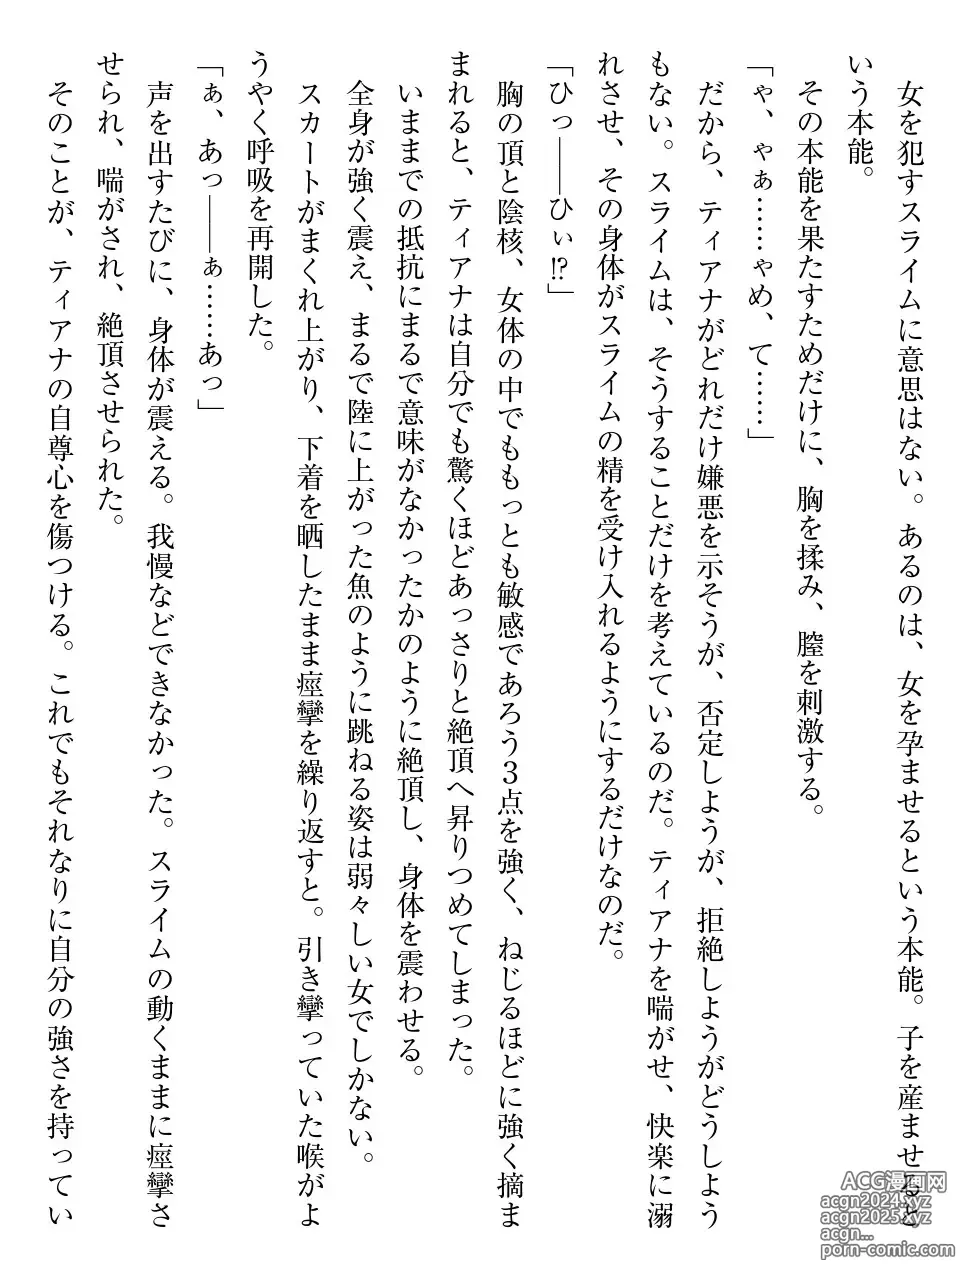 女を犯すスライムに意思はない。あるのは、女を孕ませるという本能。子を産ませると
いう本能。
その本能を果たすためだけに、胸を揉み、膣を刺激する。
「ゃ、ゃぁ……ゃめ、て……」
だから、ティアナがどれだけ嫌悪を示そうが、否定しようが、拒絶しようがどうしよう
もない。スライムは、そうすることだけを考えているのだ。ティアナを喘がせ、快楽に溺
れさせ、その身体がスライムの精を受け入れるようにするだけなのだ。
「ひっ――ひぃ!?」
胸の頂と陰核、女体の中でももっとも敏感であろう３点を強く、ねじるほどに強く摘ま
まれると、ティアナは自分でも驚くほどあっさりと絶頂へ昇りつめてしまった。
いままでの抵抗にまるで意味がなかったかのように絶頂し、身体を震わせる。
全身が強く震え、まるで陸に上がった魚のように跳ねる姿は弱々しい女でしかない。
スカートがまくれ上がり、下着を晒したまま痙攣を繰り返すと。引き攣っていた喉がよ
うやく呼吸を再開した。
「ぁ、あっ――ぁ……あっ」
声を出すたびに、身体が震える。我慢などできなかった。スライムの動くままに痙攣さ
せられ、喘がされ、絶頂させられた。
そのことが、ティアナの自尊心を傷つける。これでもそれなりに自分の強さを持ってい
ACG漫画网
acgn2024.xyz
acgn2025.xyz
acgn...
porn-comic.com